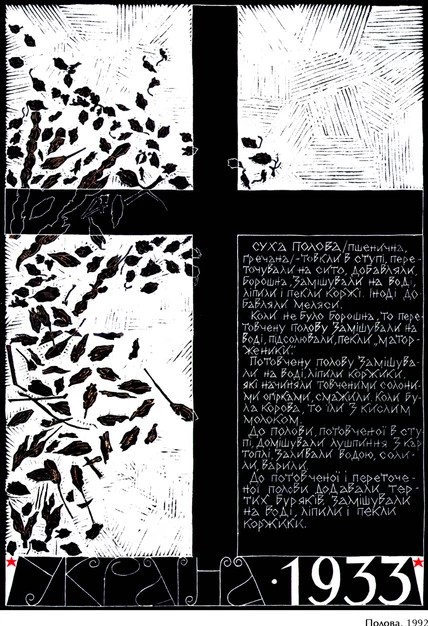 СУХА ПОЛОВА/пшенична,
гречана/-товкли в ступі, пере-
точували на сито, добавляли
борошна, замішували на воді,
ліпили і пекли коржі. Іноді до-
бавляли меляси.
Коли не було борошна, то пере-
товчену полову замішували на
воді, підсолювали, пекли „матор-
женики".
Потовчену полову замішува-
ли на воді, ліпили коржики,
які начиняли товченими солони-
ми огірками, смажили. Коли бу-
ла корова, то їли з кислим
молоком.
До полови, потовченої в сту-
пі, домішували лушпиння з кар-
топлі, заливали водою, соли-
ли, варили.
До потовченої і переточе-
ної полови додавали тер-
тих буряків, замішували
на воді, ліпили і пекли
коржики.
УКРАЇНА·1933
Полова, 1992